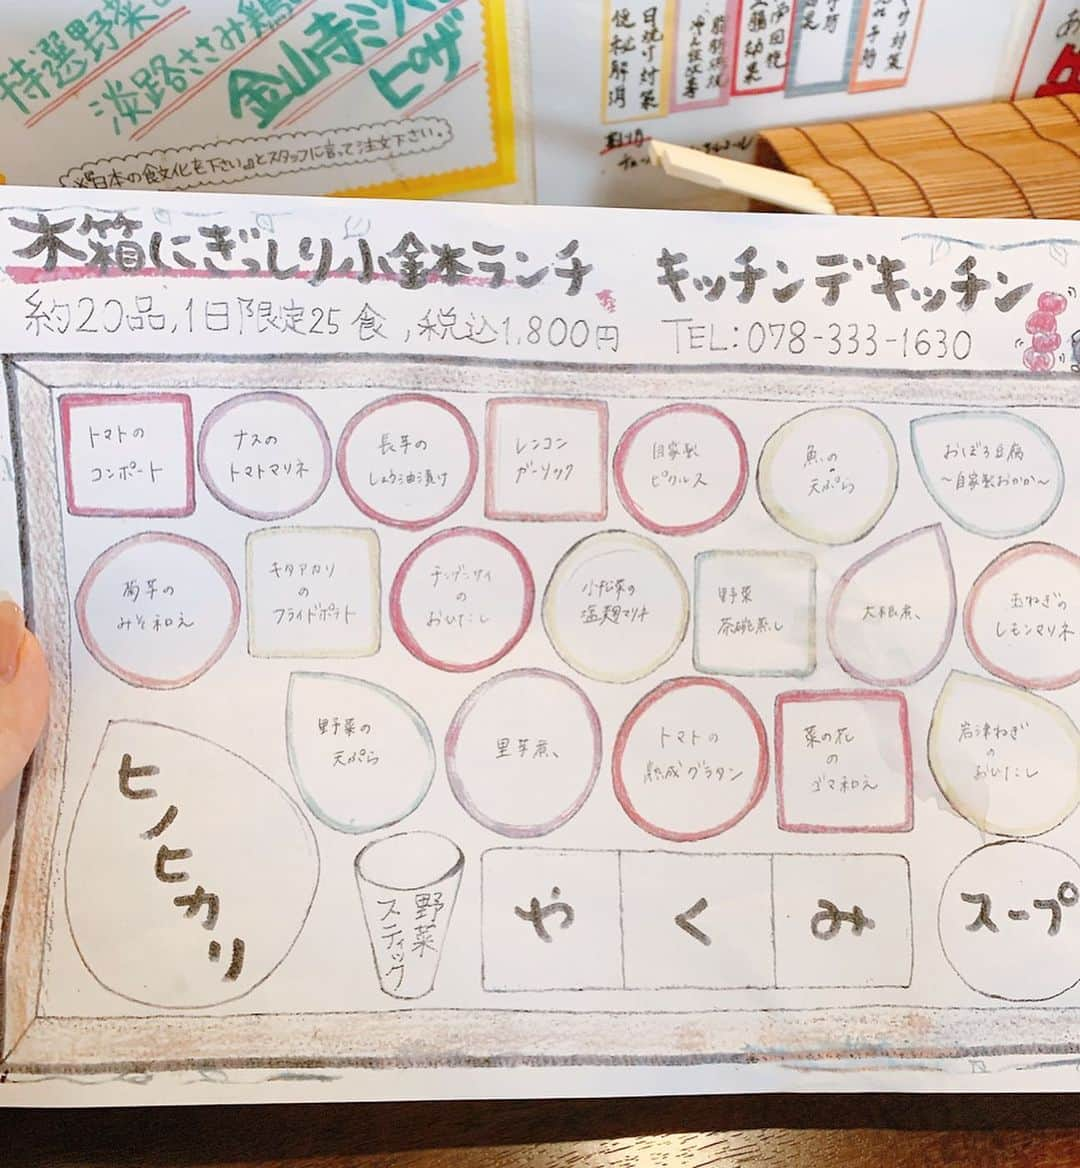 特選野菜
淡路ささみ鶏
金山寺ミソ
ピザ
※『日本の食文化を下さい。』とスタッフに言って注文下さい。
日焼け対策
木箱にぎっしり小鉢ランチ
キッチンデキッチン
約20品,1日限定25食,税込1,800円
TEL:078-333-1630
トマトの
コンポート
ナスの
トマトマリネ
長芋の
しょう油漬け
レンコン
ガーリック
自家製
ピクルス
魚の
天ぷら
おぼろ豆腐
〜自家製おかか〜
菊芋の
みそ和え
キタアカリ
の
フライドポテト
チンゲンサイ
の
おひたし
小松菜の
塩麹マリネ
野菜
茶碗蒸し
大根煮
玉ねぎの
レモンマリネ
野菜の
天ぷら
里芋煮
トマトの
熟成グラタン
菜の花
の
ゴマ和え
岩津ねぎ
の
おひたし
ヒノヒカリ
野菜
スティック
や
く
み
スープ